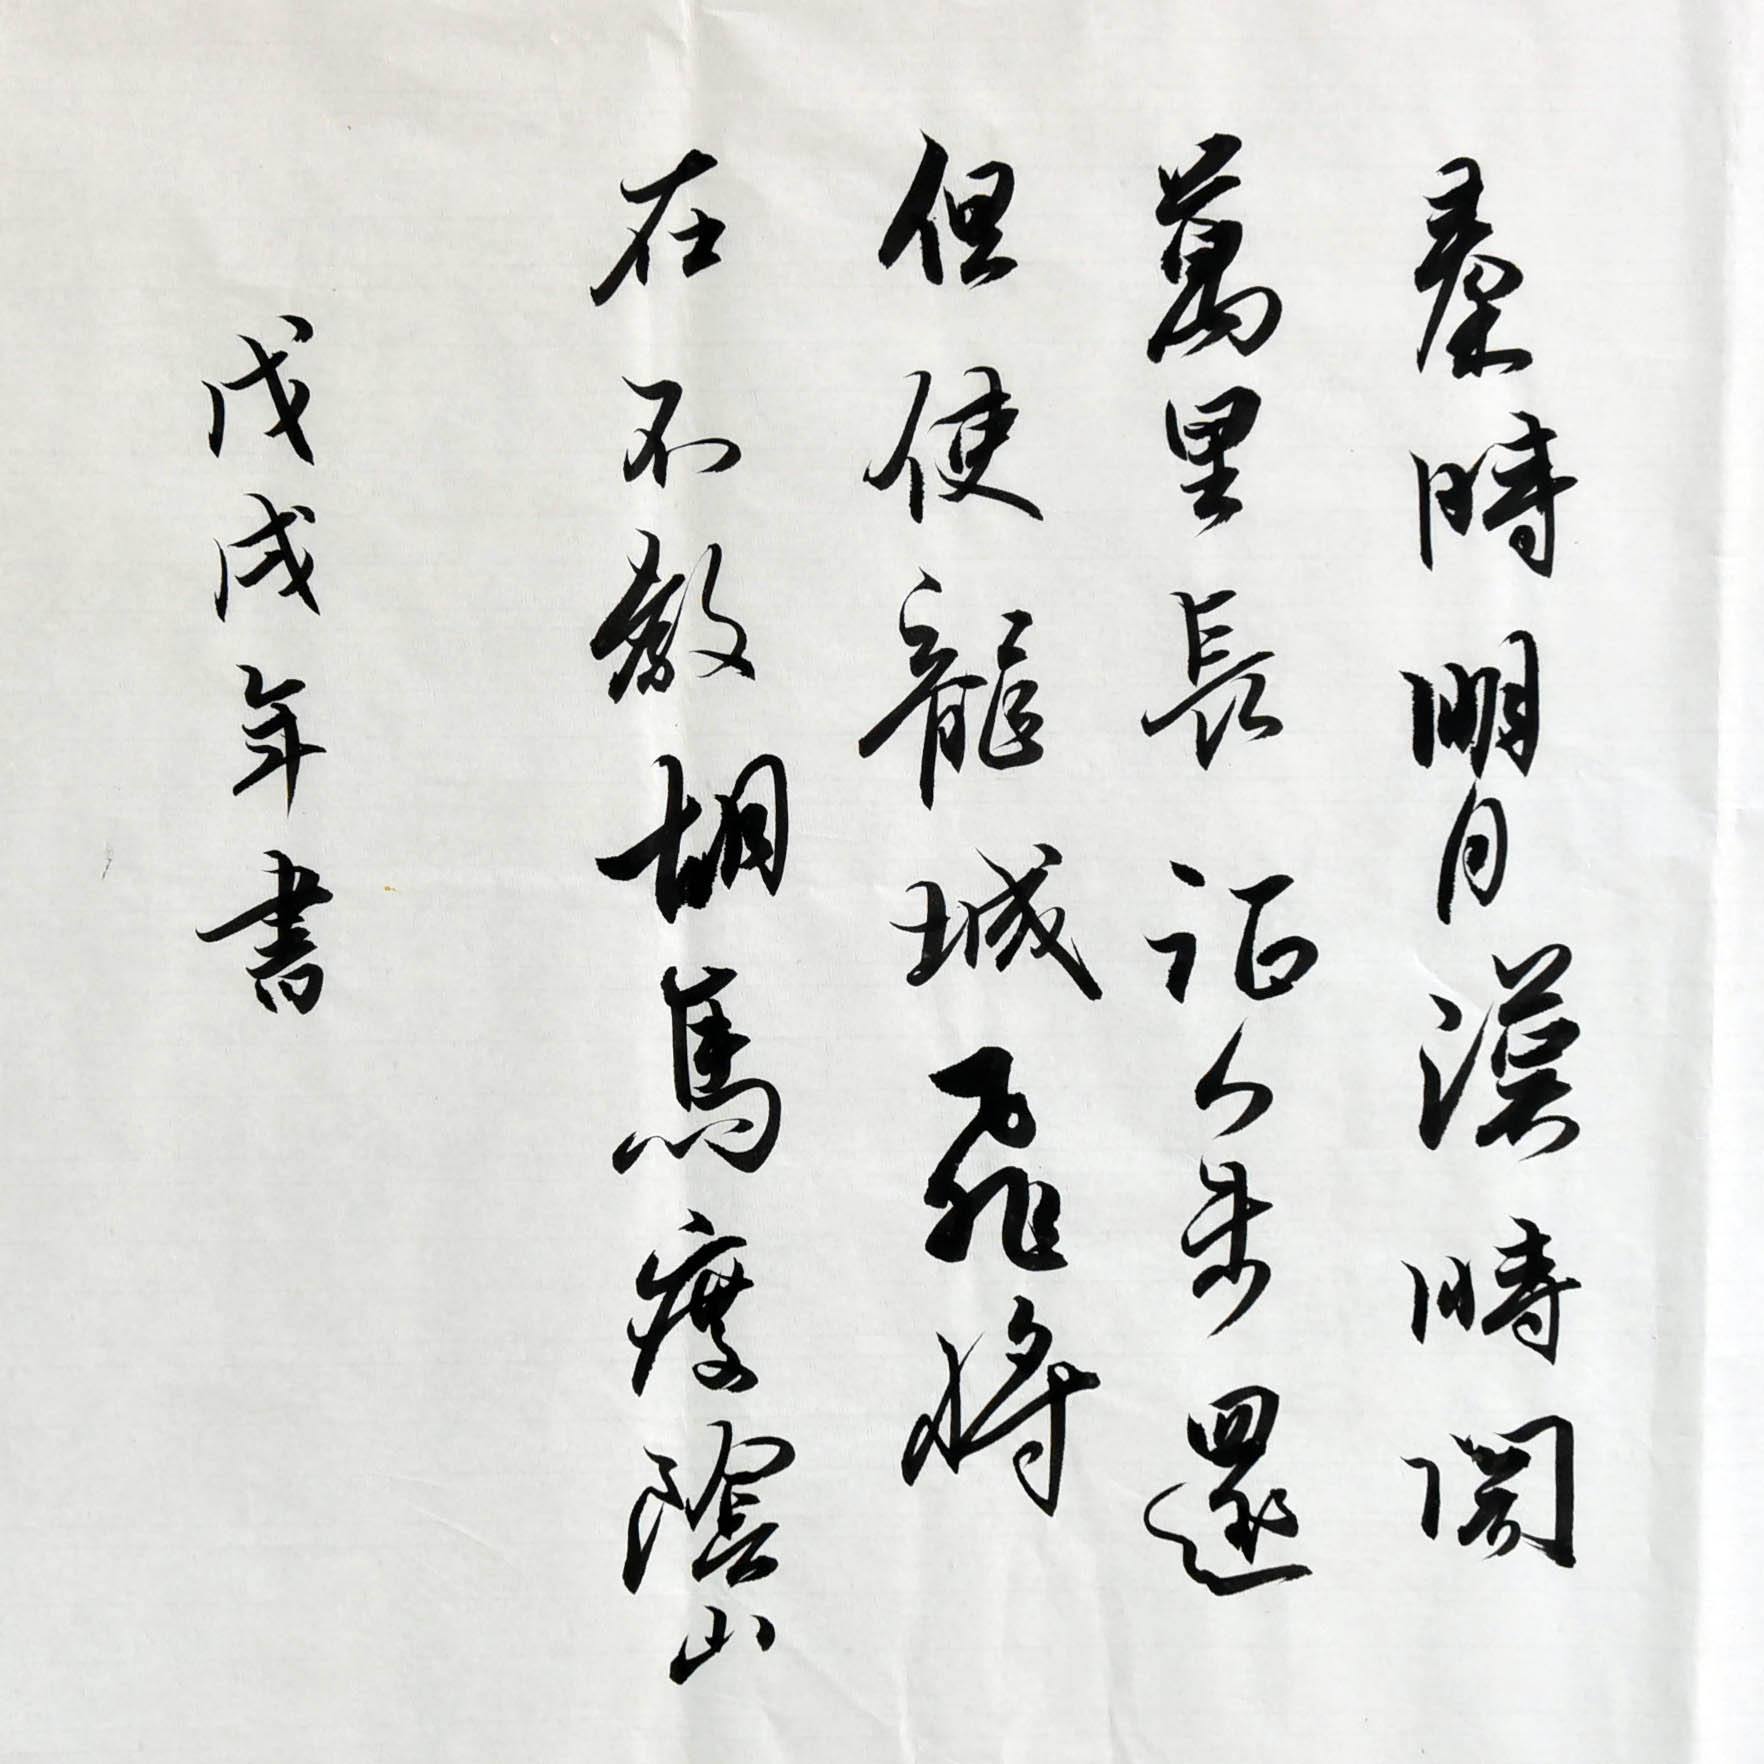 秦時明月漢時関
萬里長征人未還
但使龍城飛將
在不教胡馬度陰山
戊戌年書